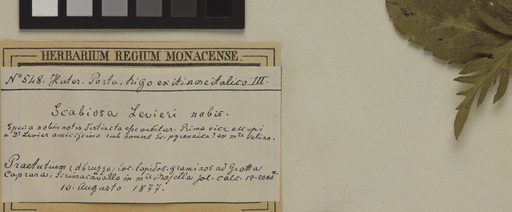 HERBARIUM REGIUM MONACENSE.
No 548. Huter. Porta. Rigo ex itinere italico III.
Scabiosa Levieri nobis.
Species nobis notis distincta esse videtur. Prima vice accepi
a Dr Levier amicissimo sub nomine Sc. pyrenaica? ex mte Velino.
Praetutium (Abruzzo) loc. lapidos. graminos ad Grotta
Caprara, Scrimacavallo in mte Majella sol. calc. 19-2000 m.
10. Augusto 1877.